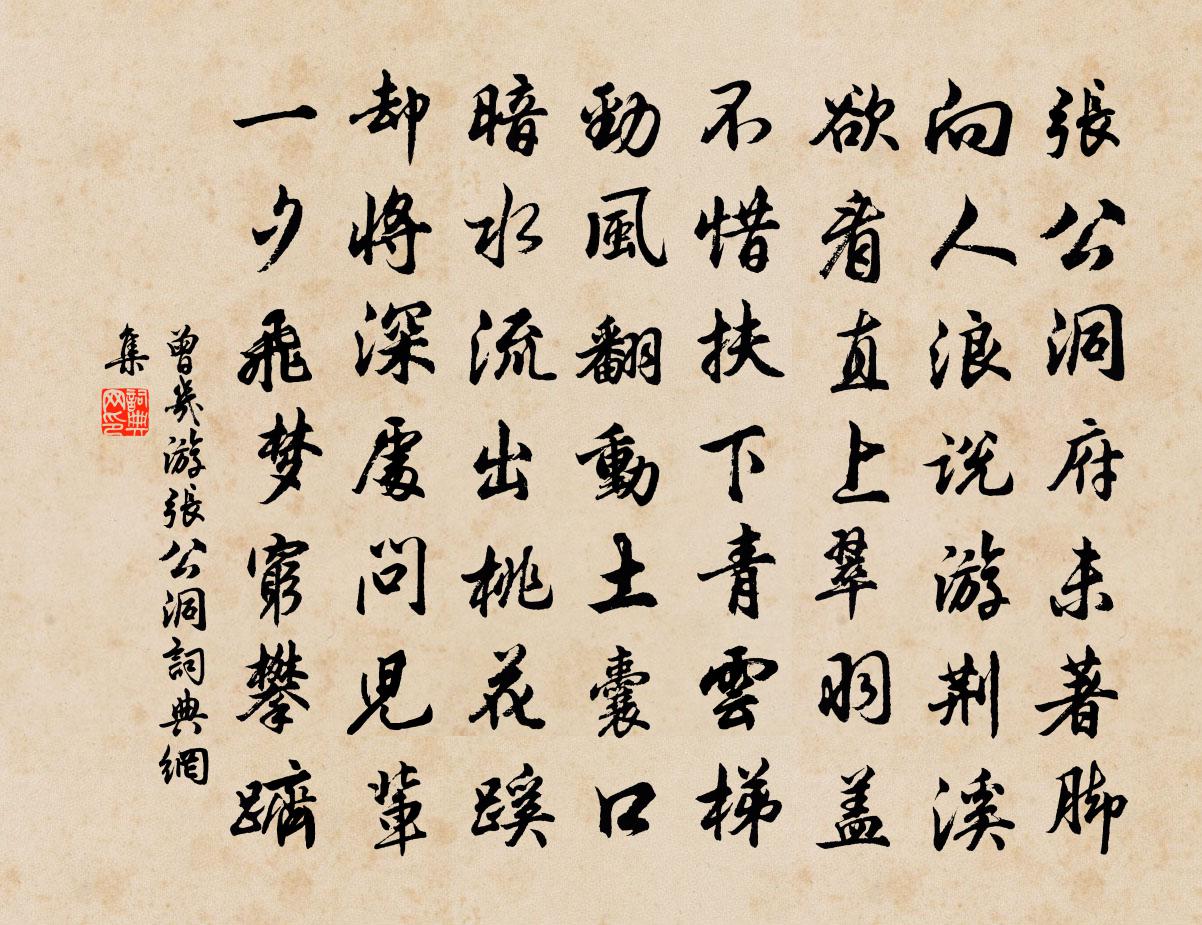 張公洞府未著脚
向人浪説游荆溪
欲看直上翠羽盖
不惜扶下青雲梯
勁風翻動土囊口
暗水流出桃花蹊
却將深處問兒輩
一夕飛梦窮攀躋
曾幾游張公洞詞典網
集
詞典网印